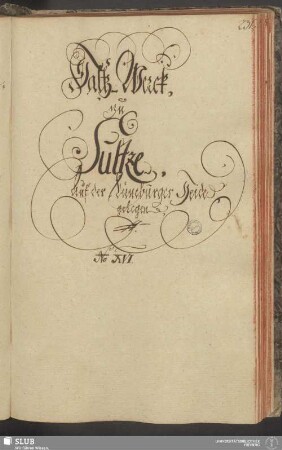 Saltz-Werck,
zu
Sultze,
auf der Lüneburger Heide
gelegen
No XII.
SLUB
Wir führen Wissen.